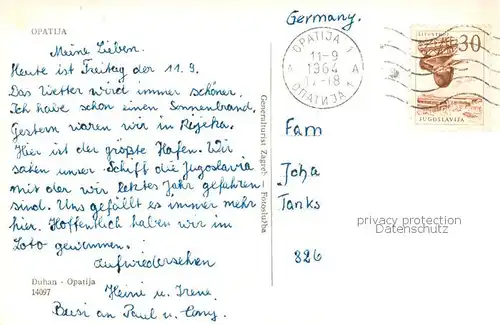 OPATIJA
Germany.
Meine Lieben.
Heute ist Freitag der 11.9.
Das Wetter wird immer schöner.
Ich habe schon einen Sonnenbrand.
Gestern waren wir in Rijeka.
Hier ist der größte Hafen. Wir
sahen unser Schiff die Jugoslavia
mit der wir letztes Jahr gefahren
sind. Uns gefällt es immer mehr
hier. Hoffentlich haben wir im
Loto gewonnen.
Aufwiedersehen
Heini u. Irene
an Paul u.
Duhan - Opatija
14097
Generalturist Zagreb Fotoslužba
OPATIJA 1
11-9
1964
17-18
A
ОПАТИЈА 1
30
JUGOSLAVIJA
Fam
Joha
Tanks
826
privacy protection
Datenschutz